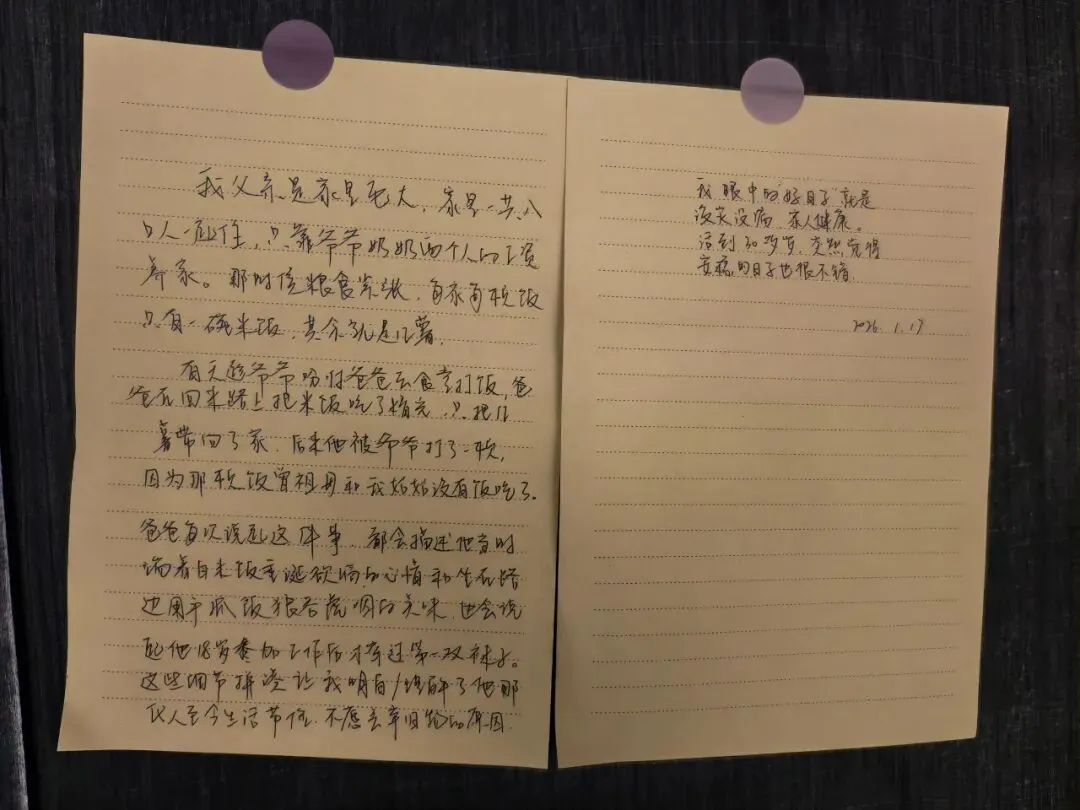 我父亲是家里老大，家里一共八
口人一起住，只靠爷爷奶奶两个人的工资
养家。那时侯粮食紧张，每家每顿饭
只有一碗米饭，其余就是红薯。
有天爷爷吩咐爸爸去食堂打饭，爸
爸在回来路上把米饭吃了精光，只把红
薯带回了家，后来他被爷爷打了一顿，
因为那顿饭曾祖母和我姑姑没有饭吃了。
爸爸每次说起这件事，都会描述他当时
端着白米饭垂涎欲滴的心情和坐在路
边用手抓饭狼吞虎咽的美味，也会说
起他18岁参加工作后才穿过第一双袜子。
这些细节拼凑让我明白/理解了他那
代人至今生活节俭，不愿丢弃旧物的原因。
我眼中的好日子就是
没灾没病，家人健康。
活到30岁，突然觉得
安稳的日子也很不错
2026.1.17